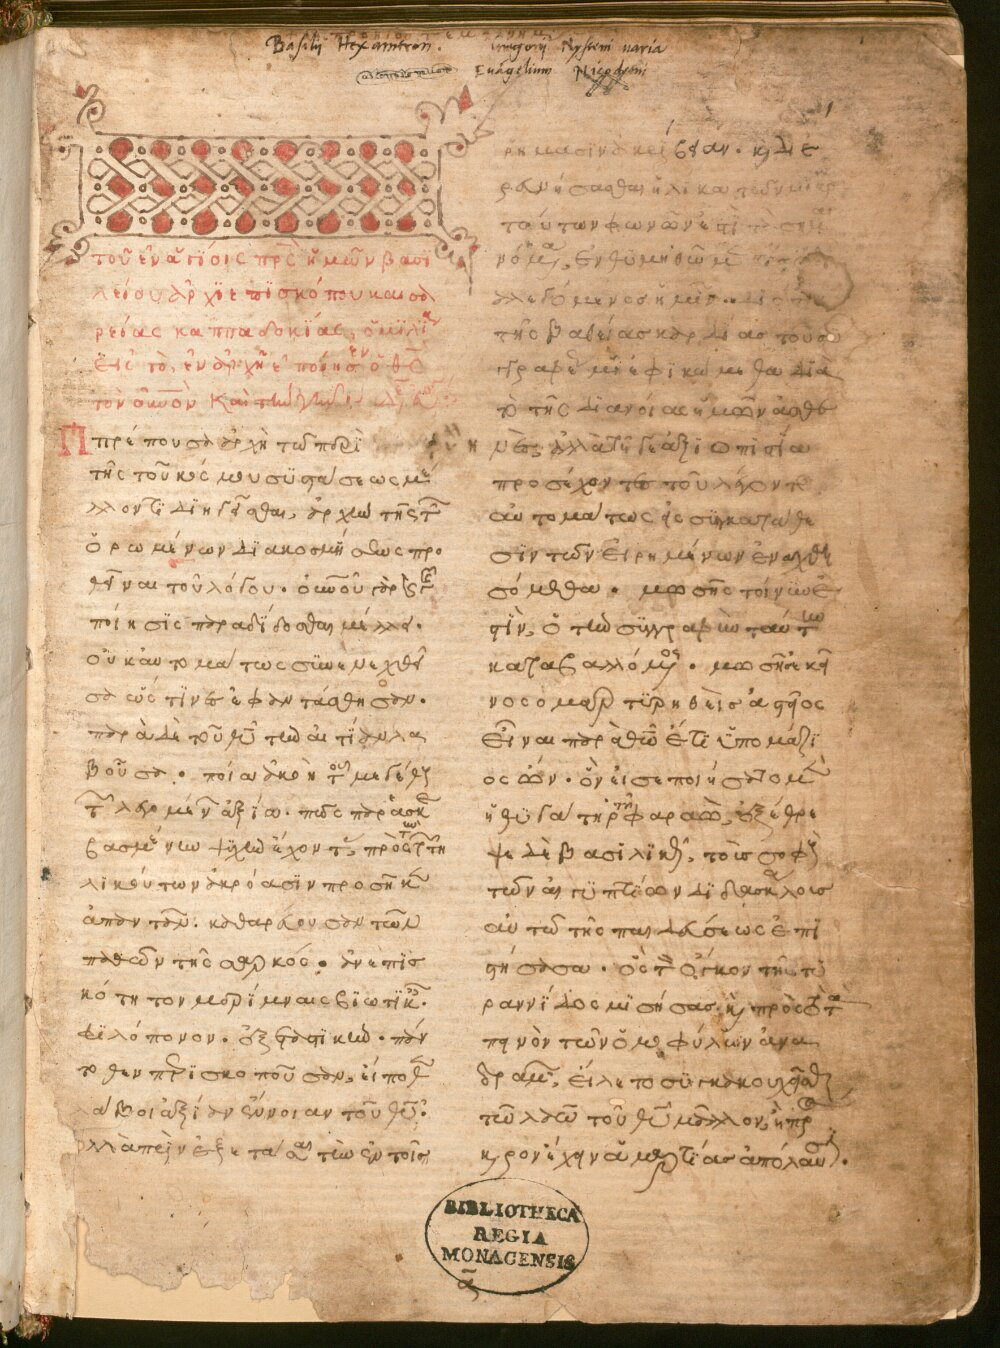 Basilij Hexameron. Gregorij Nysseni varia
Euāgelium Nicodemi
1
τοῦ ἐν ἁγίοις πρς ἡμῶν βασι
λείου ἀρχιεπισκόπου καισα
ρείας καππαδοκίας, ὁμιλία
εἰς τὸ, ἐν ἀρχῆ ἐποίησεν ὁ θς
τὸν οὐνὸν καὶ τὴν γῆν
Πρέπουσα ἀρχὴ τῶ περὶ
τῆς τοῦ κόσμου συστάσεως μέ
λλοντι διηγεῖσθαι, ἀρχὴν τῆς τῶν
ὁρωμένων διακοσμήσεως προ
θεῖναι τοῦ λόγου. οὐνοῦ γὰρ καὶ γῆς
ποίησις παραδίδοσθαι μέλλει.
οὐκ αὐτομάτως συνενεχθεῖ
σα ὥς τινες ἐφαντάσθησαν.
παρὰ δὲ τοῦ θῦ τὴν αἰτίαν λα
βοῦσα. ποία ἀκοὴ τοῦ μεγέθους
τῶν λεγομένων ἀξία. πῶς παρασκευ
ασμένην ψυχὴν ἔχοντας, πρὸς τὴν τη
λικούτων ἀκρόασιν προσῆκεν
ἀπαντᾶν. καθαρεύουσαν τῶν
παθῶν τῆς σαρκός. ἀνεπισ
κότητον μερίμναις βιωτικαῖς.
φιλόπονον. ἐξεταστικήν. πάν
τοθεν περισκοποῦσαν, εἴ ποθεν
λάβοι ἀξίαν ἔννοιαν τοῦ θῦ.
ἀλλὰ πρὶν ἐξετάσαι τὴν ἐν τοῖς
ῥήμασιν ἀκρίβειαν. καὶ διε
ρευνήσασθαι ἡλίκα τῶν μικρῶν
τούτων φωνῶν ἐστὶ τὰ σημαι
νόμενα, ἐνθυμηθῶμεν τίς ὁ
διαλεγόμενος ἡμῖν. διότι
τῆς βαθείας καρδίας τοῦ συ
γραφέως μὴ ἐφικώμεθα διὰ
τὸ τῆς διανοίας ἡμῶν ἀσθε
νὲς, ἀλλὰ τῆ γε ἀξιοπιστία
προσέχοντες τοῦ λέγοντος
αὐτομάτως εἰς συγκατάθε
σιν τῶν εἰρημένων ἐναχθη
σόμεθα. μωσῆς τοίνυν ἐ
στὶν, ὁ τὴν συγγραφὴν ταύτην
καταβαλλόμενος. μωσῆς ἐκεῖ
νος ὁ μαρτυρηθεὶς ἀστεῖος
εἶναι παρὰ θῶ ἔτι ὑπομάζι
ος ὤν. ὃν εἰσεποιήσατο μὲν
ἡ θυγάτηρ φαραὼ, ἐξέθρε
ψε δὲ βασιλικῶς, τοὺς σοφοὺς
τῶν αἰγυπτίων διδασκάλους
αὐτῶ τῆς παιδεύσεως ἐπι
στήσασα. ὃς τὸν ὄγκον τῆς τυ
ραννίδος μισήσας, καὶ πρὸς τὸ τα
πεινὸν τῶν ὁμοφύλων ἀνα
δραμὼν, εἵλετο συγκακουχεῖσθαι
τῶ λαῶ τοῦ θῦ μᾶλλον, ἢ πρόσ
καιρον ἔχειν ἁμαρτίας ἀπόλαυσιν.
BIBLIOTHECA
REGIA
MONACENSIS
α